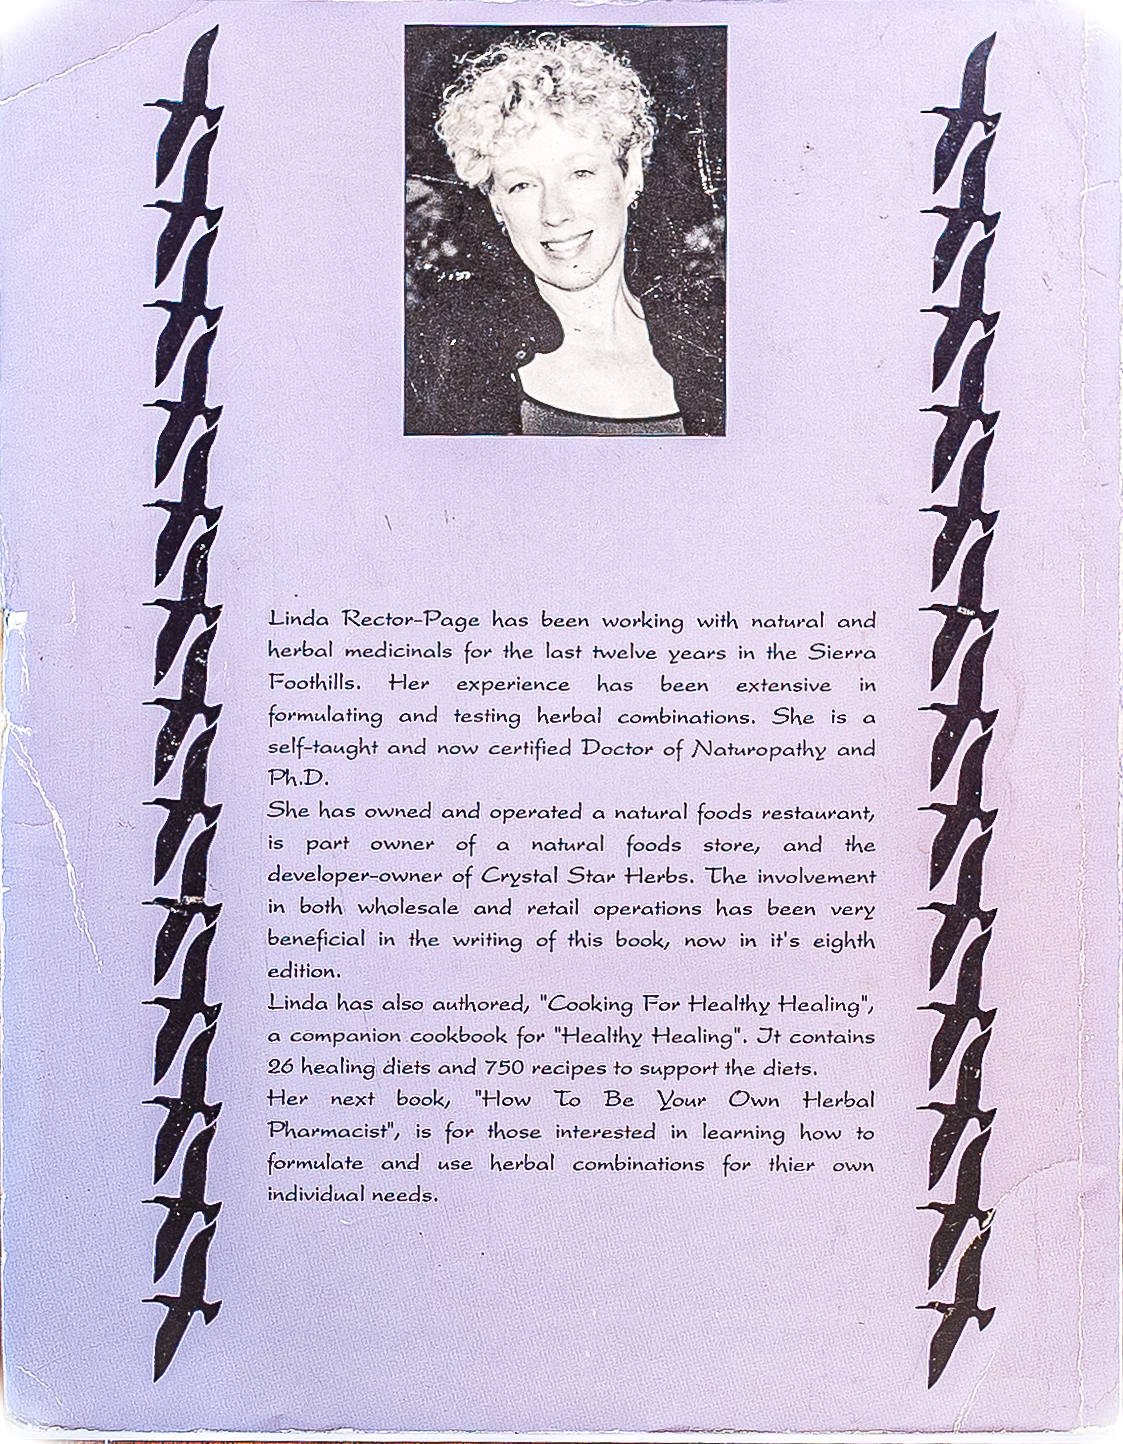 Linda Rector-Page has been working with natural and
herbal medicinals for the last twelve years in the Sierra
Foothills. Her experience has been extensive in
formulating and testing herbal combinations. She is a
self-taught and now certified Doctor of Naturopathy and
Ph.D.
She has owned and operated a natural foods restaurant,
is part owner of a natural foods store, and the
developer-owner of Crystal Star Herbs. The involvement
in both wholesale and retail operations has been very
beneficial in the writing of this book, now in it's eighth
edition.
Linda has also authored, "Cooking For Healthy Healing",
a companion cookbook for "Healthy Healing". It contains
26 healing diets and 750 recipes to support the diets.
Her next book, "How To Be Your Own Herbal
Pharmacist", is for those interested in learning how to
formulate and use herbal combinations for thier own
individual needs.